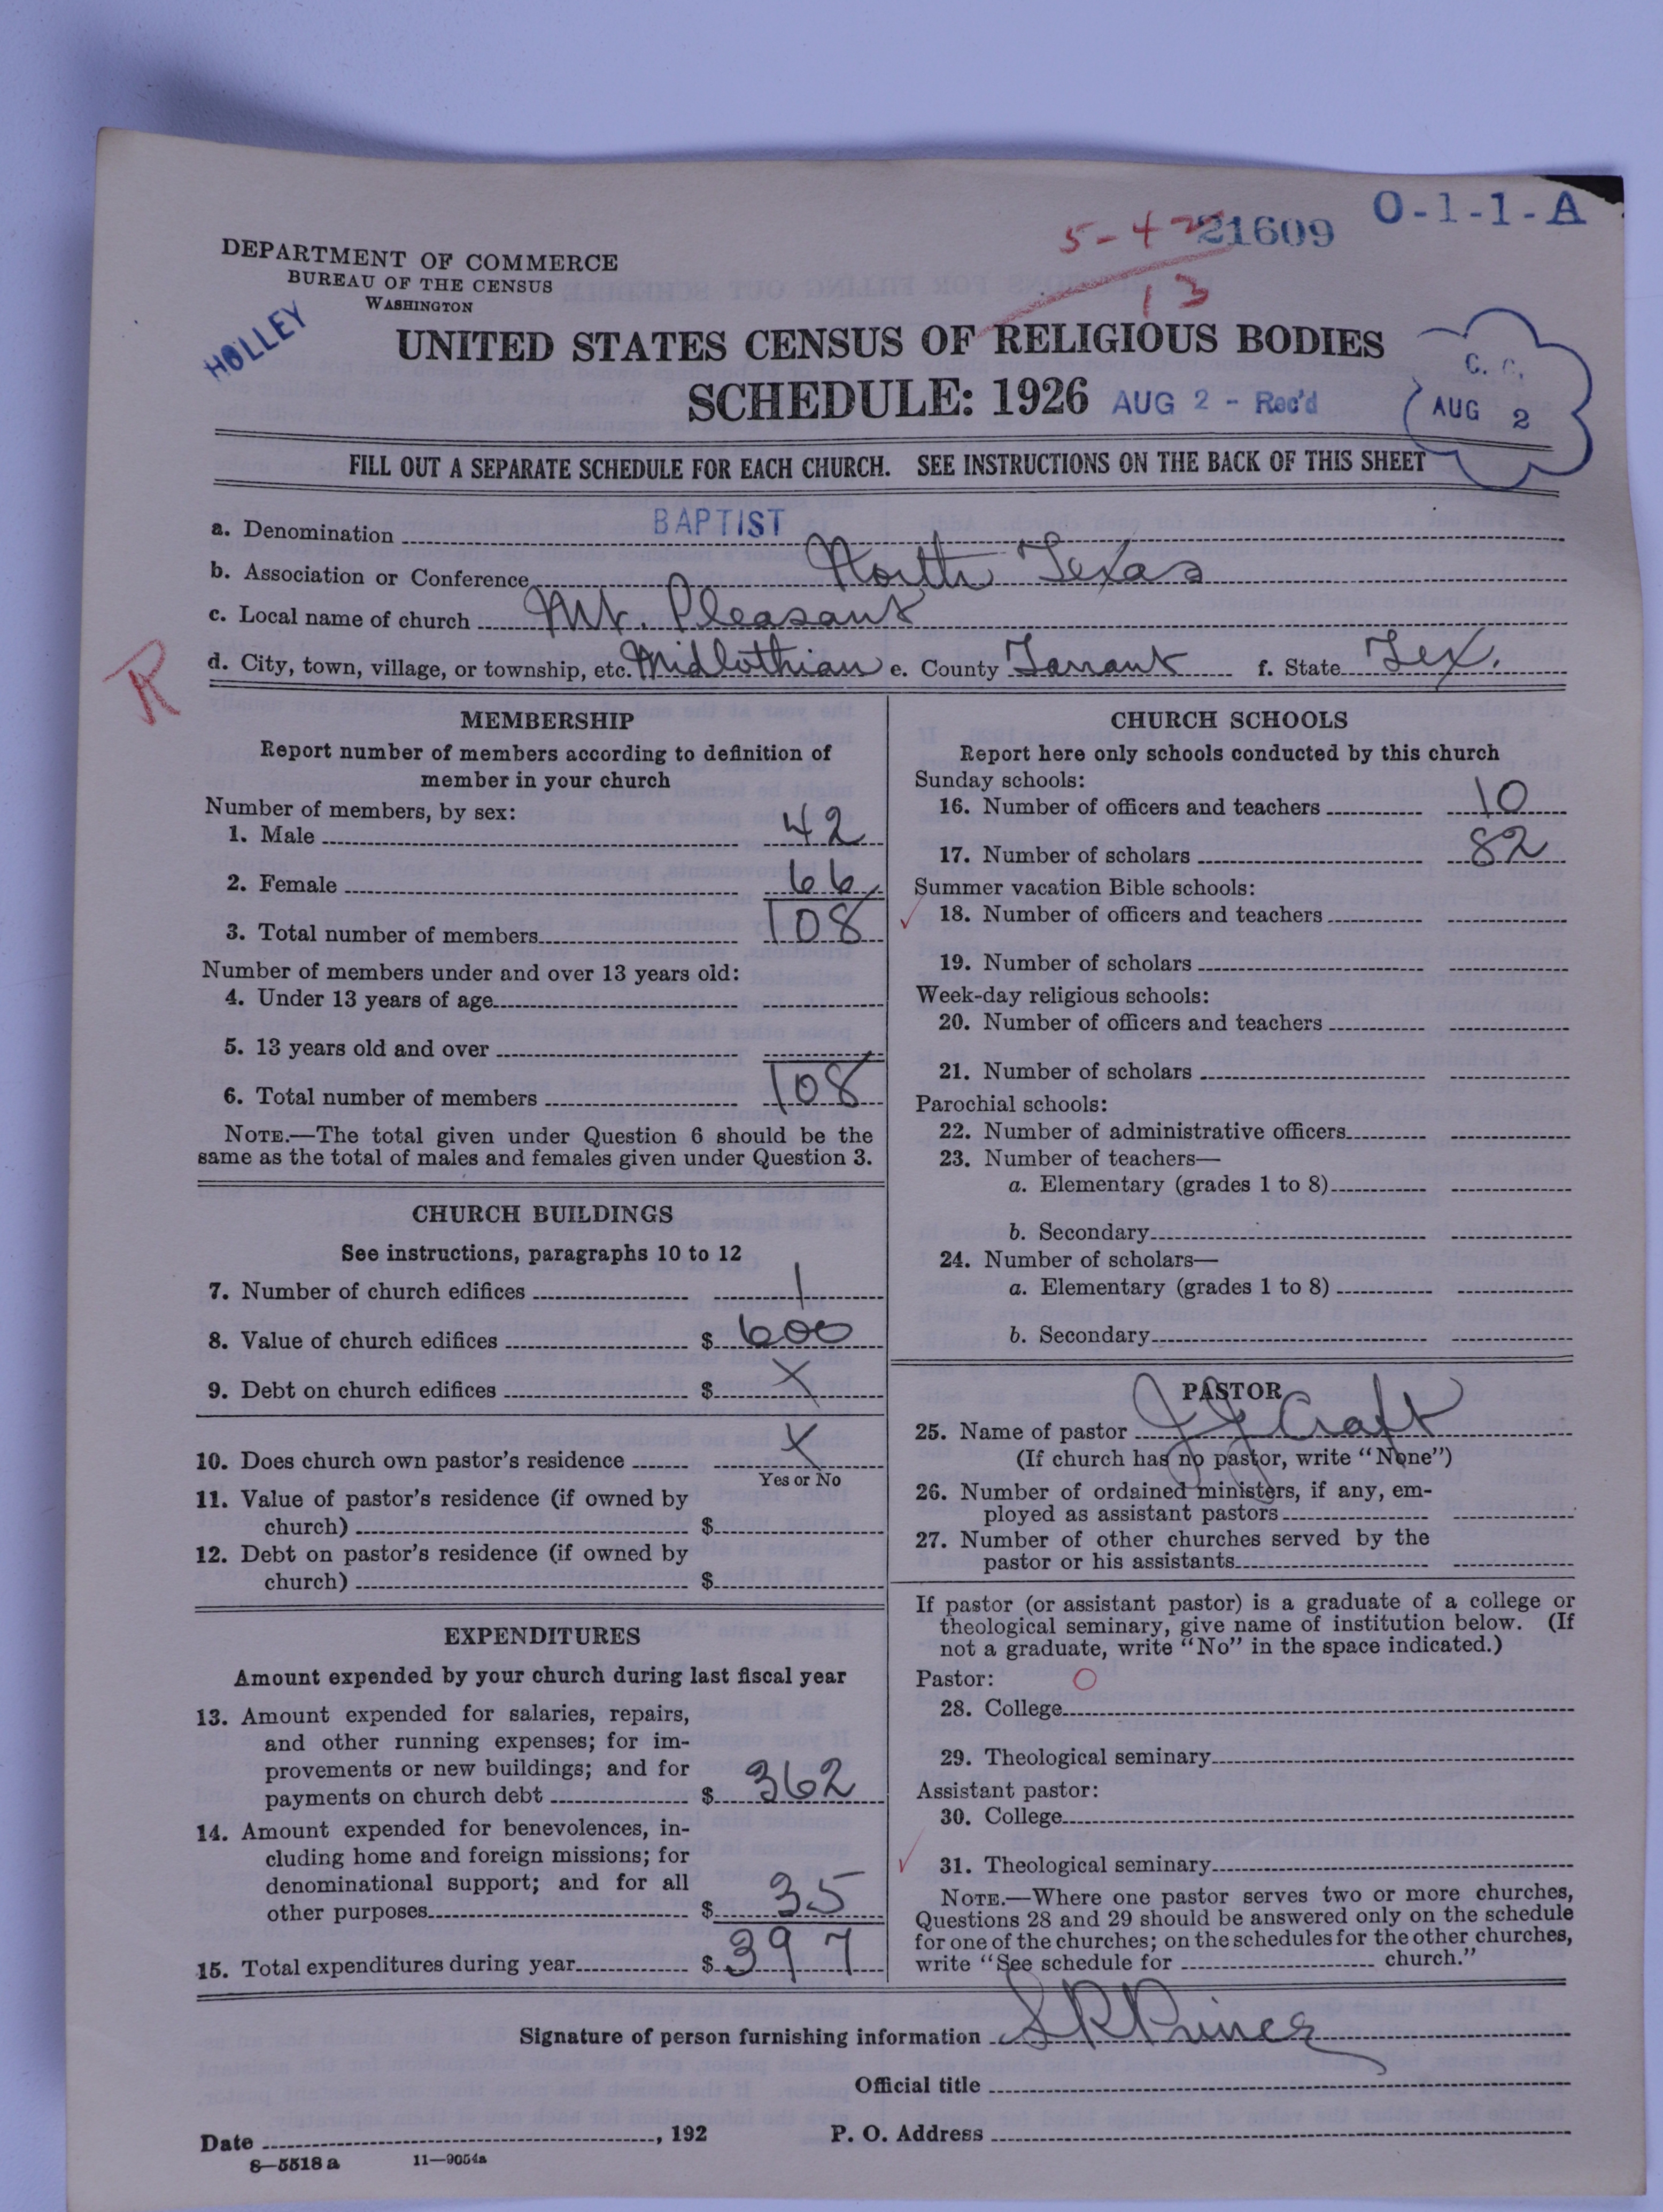 O-1-1-A
5-42 21609
13
DEPARTMENT OF COMMERCE
BUREAU OF THE CENSUS
WASHINGTON
HOLLEY
UNITED STATES CENSUS OF RELIGIOUS BODIES
SCHEDULE: 1926 AUG 2 - Rec'd
C. C.
AUG 2
FILL OUT A SEPARATE SCHEDULE FOR EACH CHURCH. SEE INSTRUCTIONS ON THE BACK OF THIS SHEET
a. Denomination BAPTIST
b. Association or Conference North Texas
c. Local name of church Mt. Pleasant
d. City, town, village, or township, etc. Midlothian e. County Tarrant f. State Tex.
R
MEMBERSHIP
Report number of members according to definition of
member in your church
Number of members, by sex:
1. Male 42
2. Female 66
3. Total number of members 108
Number of members under and over 13 years old:
4. Under 13 years of age
5. 13 years old and over
6. Total number of members 108
NOTE.—The total given under Question 6 should be the
same as the total of males and females given under Question 3.
CHURCH BUILDINGS
See instructions, paragraphs 10 to 12
7. Number of church edifices 1
8. Value of church edifices $ 600
9. Debt on church edifices $ X
10. Does church own pastor's residence X
Yes or No
11. Value of pastor's residence (if owned by
church) $
12. Debt on pastor's residence (if owned by
church) $
EXPENDITURES
Amount expended by your church during last fiscal year
13. Amount expended for salaries, repairs,
and other running expenses; for im-
provements or new buildings; and for
payments on church debt $ 362
14. Amount expended for benevolences, in-
cluding home and foreign missions; for
denominational support; and for all
other purposes $ 35
15. Total expenditures during year $ 397
CHURCH SCHOOLS
Report here only schools conducted by this church
Sunday schools:
16. Number of officers and teachers 10
17. Number of scholars 82
Summer vacation Bible schools:
18. Number of officers and teachers
19. Number of scholars
Week-day religious schools:
20. Number of officers and teachers
21. Number of scholars
Parochial schools:
22. Number of administrative officers
23. Number of teachers—
a. Elementary (grades 1 to 8)
b. Secondary
24. Number of scholars—
a. Elementary (grades 1 to 8)
b. Secondary
PASTOR
25. Name of pastor J J Craft
(If church has no pastor, write "None")
26. Number of ordained ministers, if any, em-
ployed as assistant pastors
27. Number of other churches served by the
pastor or his assistants
If pastor (or assistant pastor) is a graduate of a college or
theological seminary, give name of institution below. (If
not a graduate, write "No" in the space indicated.)
Pastor: O
28. College
29. Theological seminary
Assistant pastor:
30. College
31. Theological seminary
NOTE.—Where one pastor serves two or more churches,
Questions 28 and 29 should be answered only on the schedule
for one of the churches; on the schedules for the other churches,
write "See schedule for church."
Signature of person furnishing information S R Prince
Official title
Date , 192 P. O. Address
8—5518 a 11—9054a